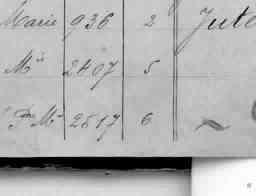 Marie 936 2 Jute
M.lle 2407 5
Fme M.lle 2517 6